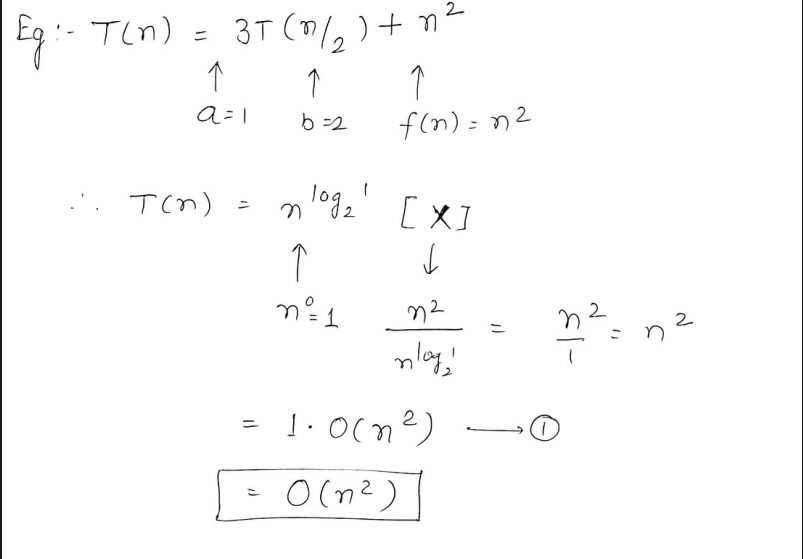 Eg :- T(n) = 3T(n/2) + n²
↑ ↑ ↑
a=1 b=2 f(n) = n²
∴ T(n) = n^log₂1 [X]
↑ ↓
n⁰=1 n²/n^log₂1 = n²/1 = n²
= 1. O(n²) ⟶ ①
= O(n²)